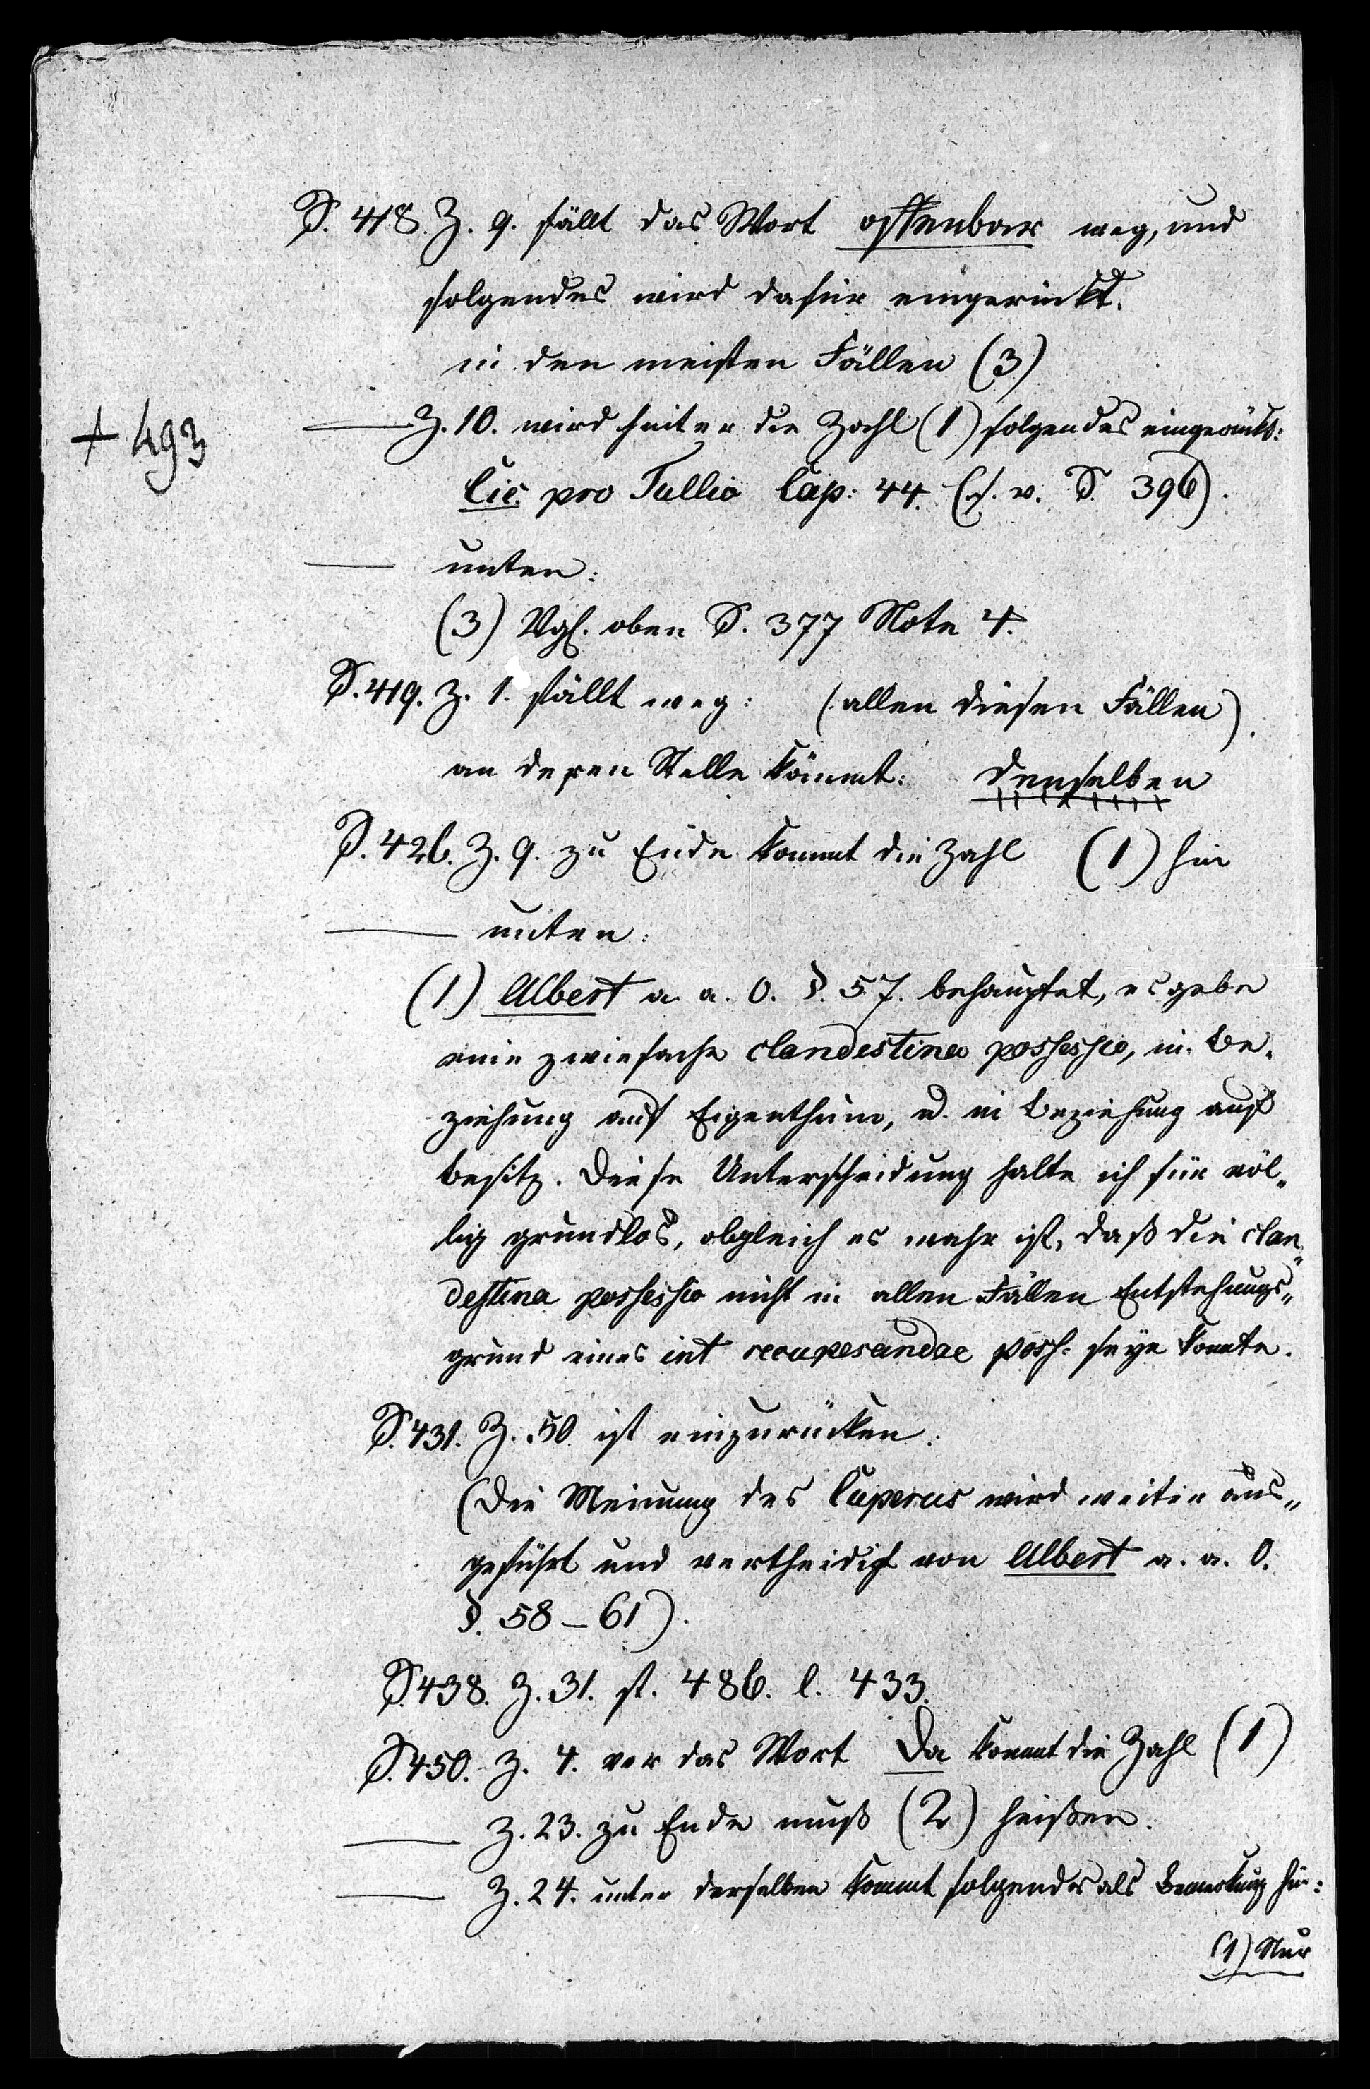 S. 418. Z. 9. fällt das Wort offenbar weg, und
folgendes wird dafür eingerückt.
in den meisten Fällen (3)
+ 493
— Z. 10. wird hinter die Zahl (1) folgendes eingerückt:
Cic. pro Tullio Cap: 44. (s. v. S. 396).
— unten:
(3) Vgl. oben S. 377 Note 4.
S. 419. Z. 1. fällt weg: (allen diesen Fällen).
an deren Stelle kömmt: denselben
S. 426. Z. 9. zu Ende kommt die Zahl (1) hin
— unten:
(1) Albert a. a. O. §. 57. behauptet, es gebe
eine zwiefache clandestina possessio, in Be-
ziehung auf Eigenthum, u. in Beziehung auf
Besitz. Diese Unterscheidung halte ich für völ-
lig grundlos, obgleich es wahr ist, daß die clan-
destina possessio nicht in allen Fällen Entstehungs-
grund eines int recuperandae poss. seyn konnte.
S. 431. Z. 50. ist einzurücken:
(Die Meinung des Cuperus wird weiter aus-
geführt und vertheidigt von Albert a. a. O.
§. 58 – 61).
S. 438. Z. 31. st. 486. l. 433.
S. 450. Z. 4. vor das Wort Da kommt die Zahl (1)
— Z. 23. zu Ende muß (2) heißen.
— Z. 24. unter derselben kommt folgendes als Bemerkung hin:
(1) Nur